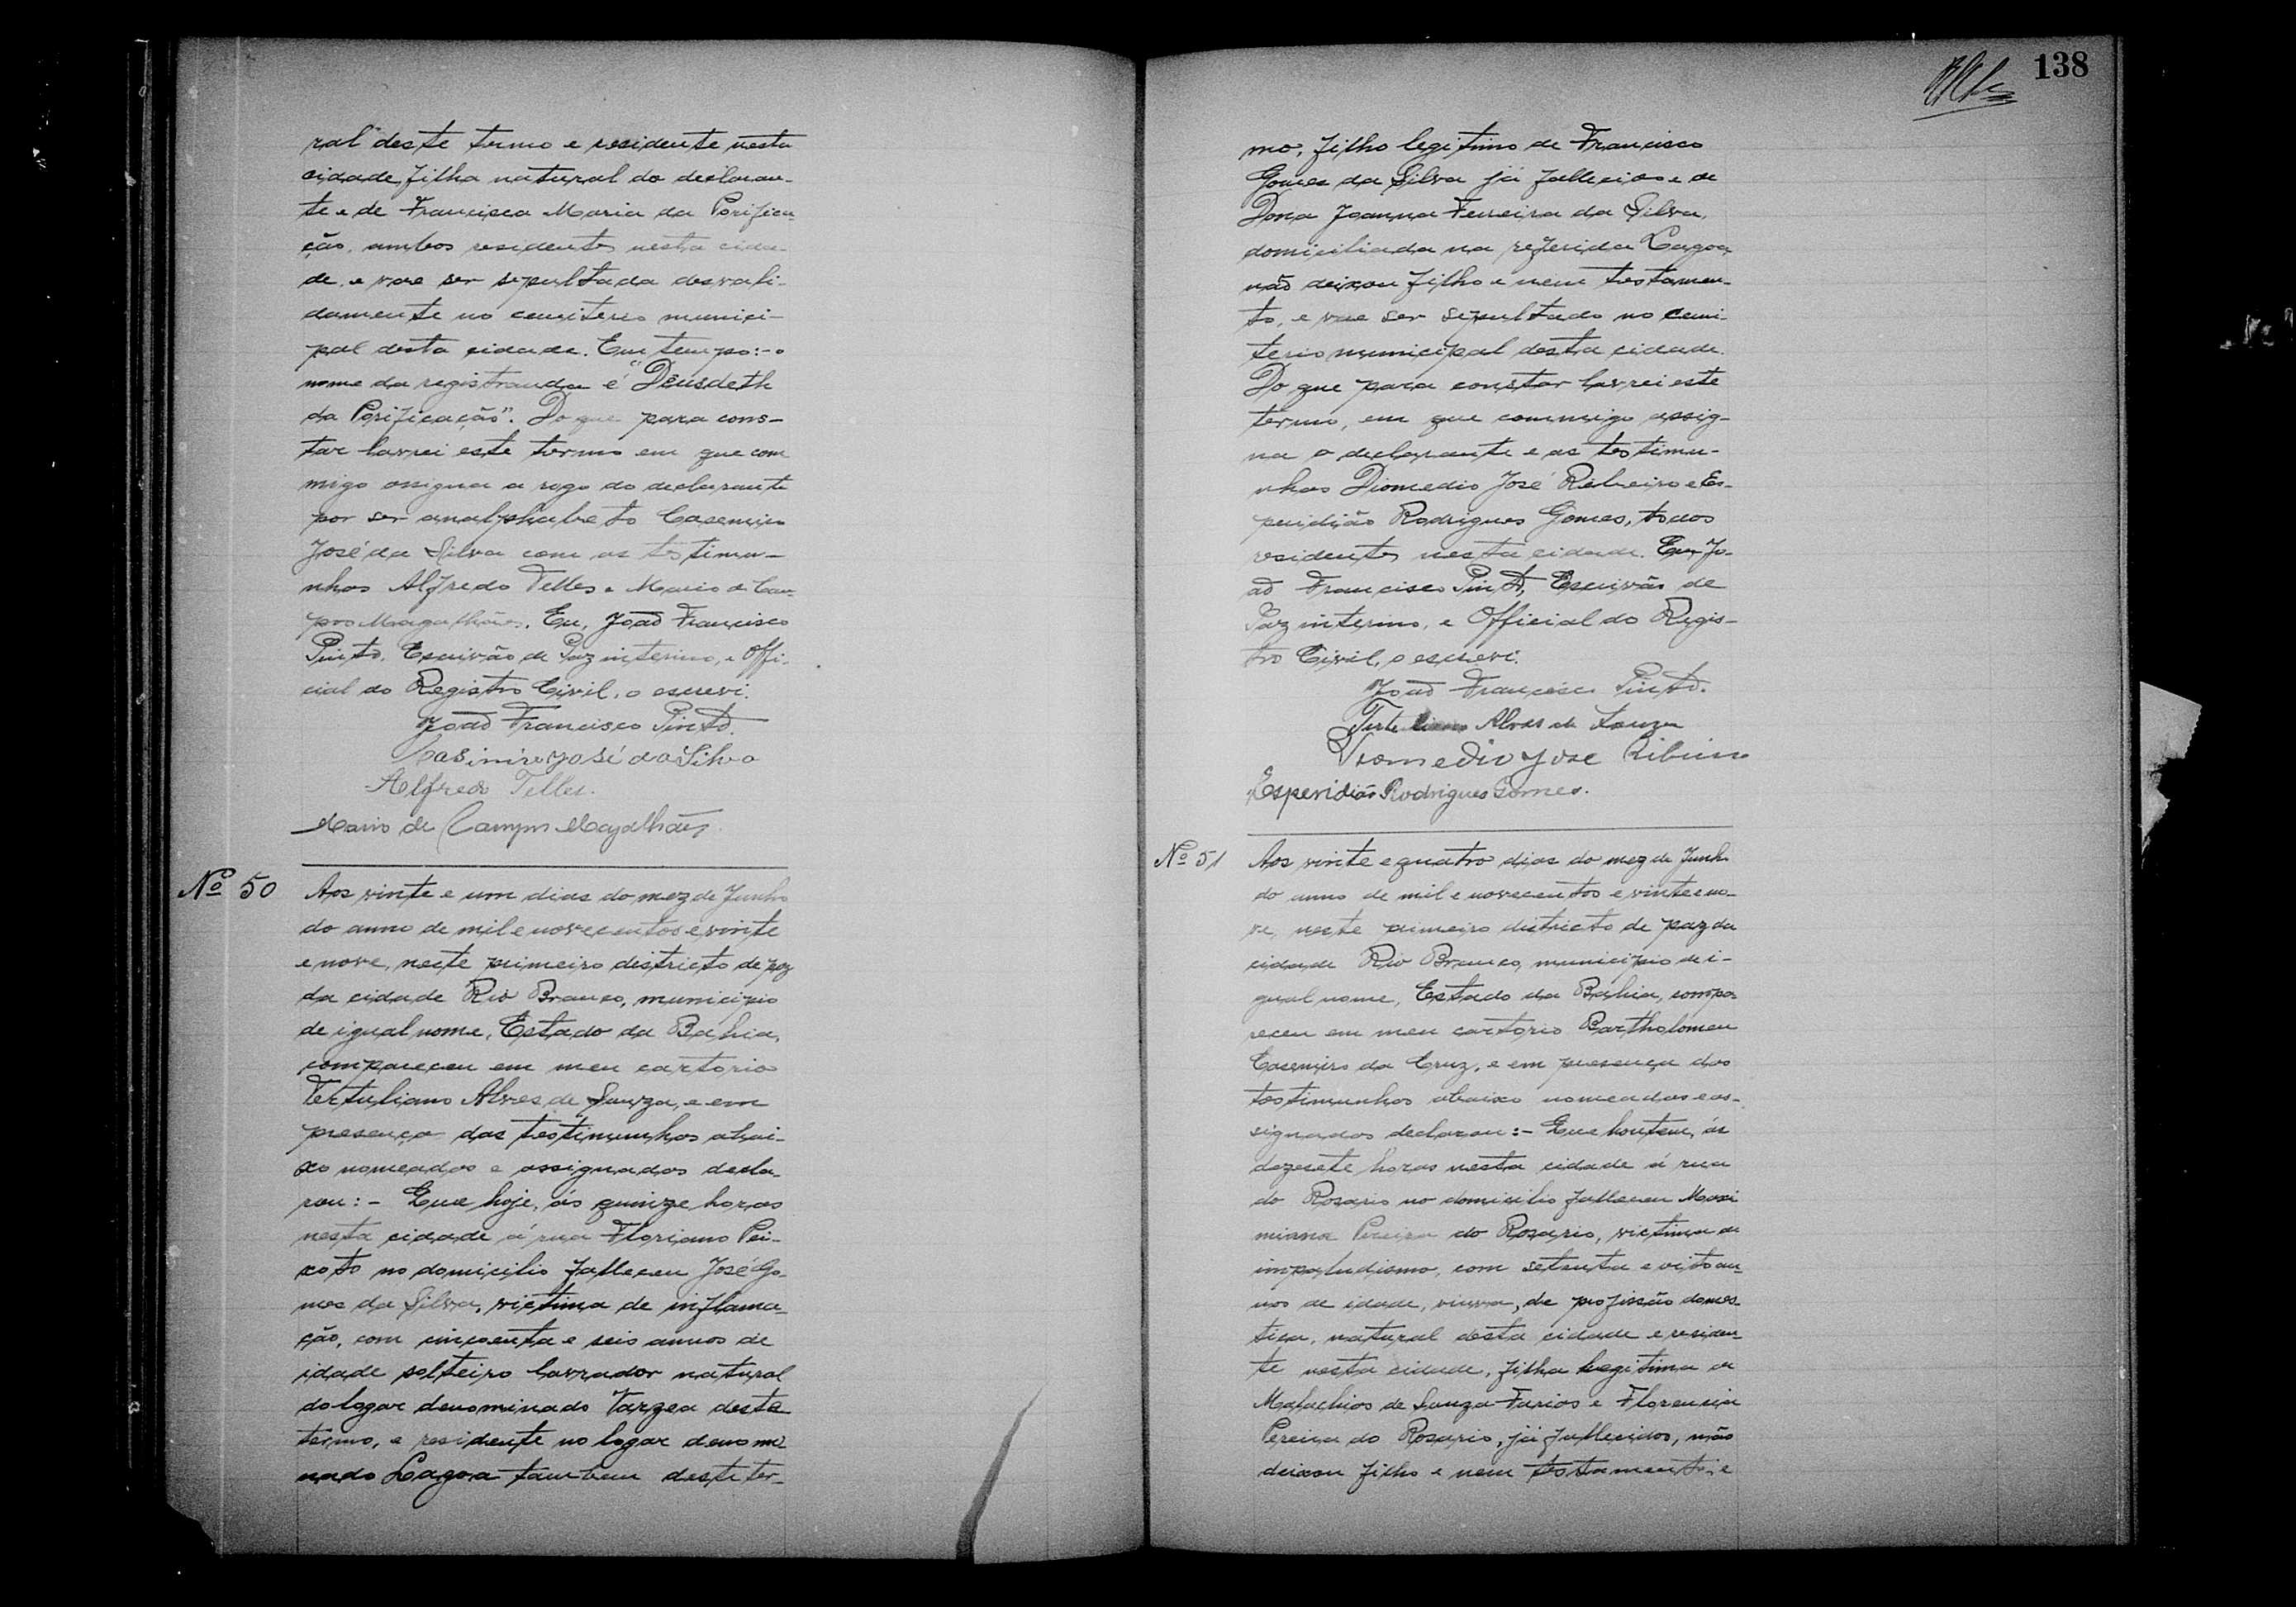 ral deste termo e residente nesta
cidade, filha natural do declaran-
te e de Francisca Maria da Porifica-
ção, ambos residentes nesta cida-
de, e vae ser sepultada desvali-
damente no cemiterio munici-
pal desta cidade. Em tempo:- o
nome da registranda é "Deusdeth
da Porificação". Do que para cons-
tar lavrei este termo em que com
migo assigna a rogo do declarante
por ser analphabeto Casemiro
José da Silva com as testimu-
nhas Alfredo Telles e Mario de Cam-
pos Magalhães. Eu, João Francisco
Pinto, Escrivão de Paz interino, e Offi-
cial do Registro Civil, o escrevi.
João Francisco Pinto.
Casimiro José da Silva
Alfredo Telles.
Mario de Campos Magalhães.
Nº 50
Aos vinte e um dias do mez de Junho
do anno de mil e novecentos e vinte
e nove, neste primeiro districto de paz
da cidade Rio Branco, municipio
de igual nome, Estado da Bahia,
compareceu em meu cartorio
Tertuliano Alves de Souza, e em
presença das testimunhas abai-
xo nomeadas e assignadas decla-
rou:- Que hoje, ás quinze horas
nesta cidade á rua Floriano Pei-
xoto no domicilio falleceu José Go-
mes da Silva, victima de inflama-
ção, com cincoenta e seis annos de
idade solteiro lavrador natural
do logar denominado Vargea deste
termo, e residente no logar denomi
nado Lagoa tambem deste ter-
138
mo, filho legitimo de Francisco
Gomes da Silva já fallecido e de
Dona Joanna Ferreira da Silva,
domiciliada na referida Lagoa,
não deixou filho e nem testamen-
to, e vae ser sepultado no cemi-
terio municipal desta cidade.
Do que para constar lavrei este
termo, em que commigo assig-
na o declarante e as testimu-
nhas Diomedio José Ribeiro e Es-
peridião Rodrigues Gomes, todos
residentes nesta cidade. Eu Jo-
ão Francisco Pinto, Escrivão de
Paz interino, e Official do Regis-
tro Civil, o escrevi.
João Francisco Pinto.
Tertuliano Alves de Souza
Diomedio Jose Ribeiro
Esperidião Rodrigues Gomes.
Nº 51
Aos vinte e quatro dias do mez de Junho
do anno de mil e novecentos e vinte e no-
ve, neste primeiro districto de paz da
cidade Rio Branco, municipio de i-
gual nome, Estado da Bahia, compa-
receu em meu cartorio Bartholomeu
Casemiro da Cruz, e em presença das
testimunhas abaixo nomeadas e as-
signadas declarou:- Que hontem, ás
dezesete horas nesta cidade á rua
do Rosario no domicilio falleceu Maxi
miana Pereira do Rosario, victima de
impaludismo, com setenta e oito an-
nos de idade, viuva, de profissão domes-
tica, natural desta cidade e residen-
te nesta cidade, filha legitima de
Malachias de Souza Farias e Florencia
Pereira do Rosario, já fallecidos, não
deixou filho e nem testamento, e